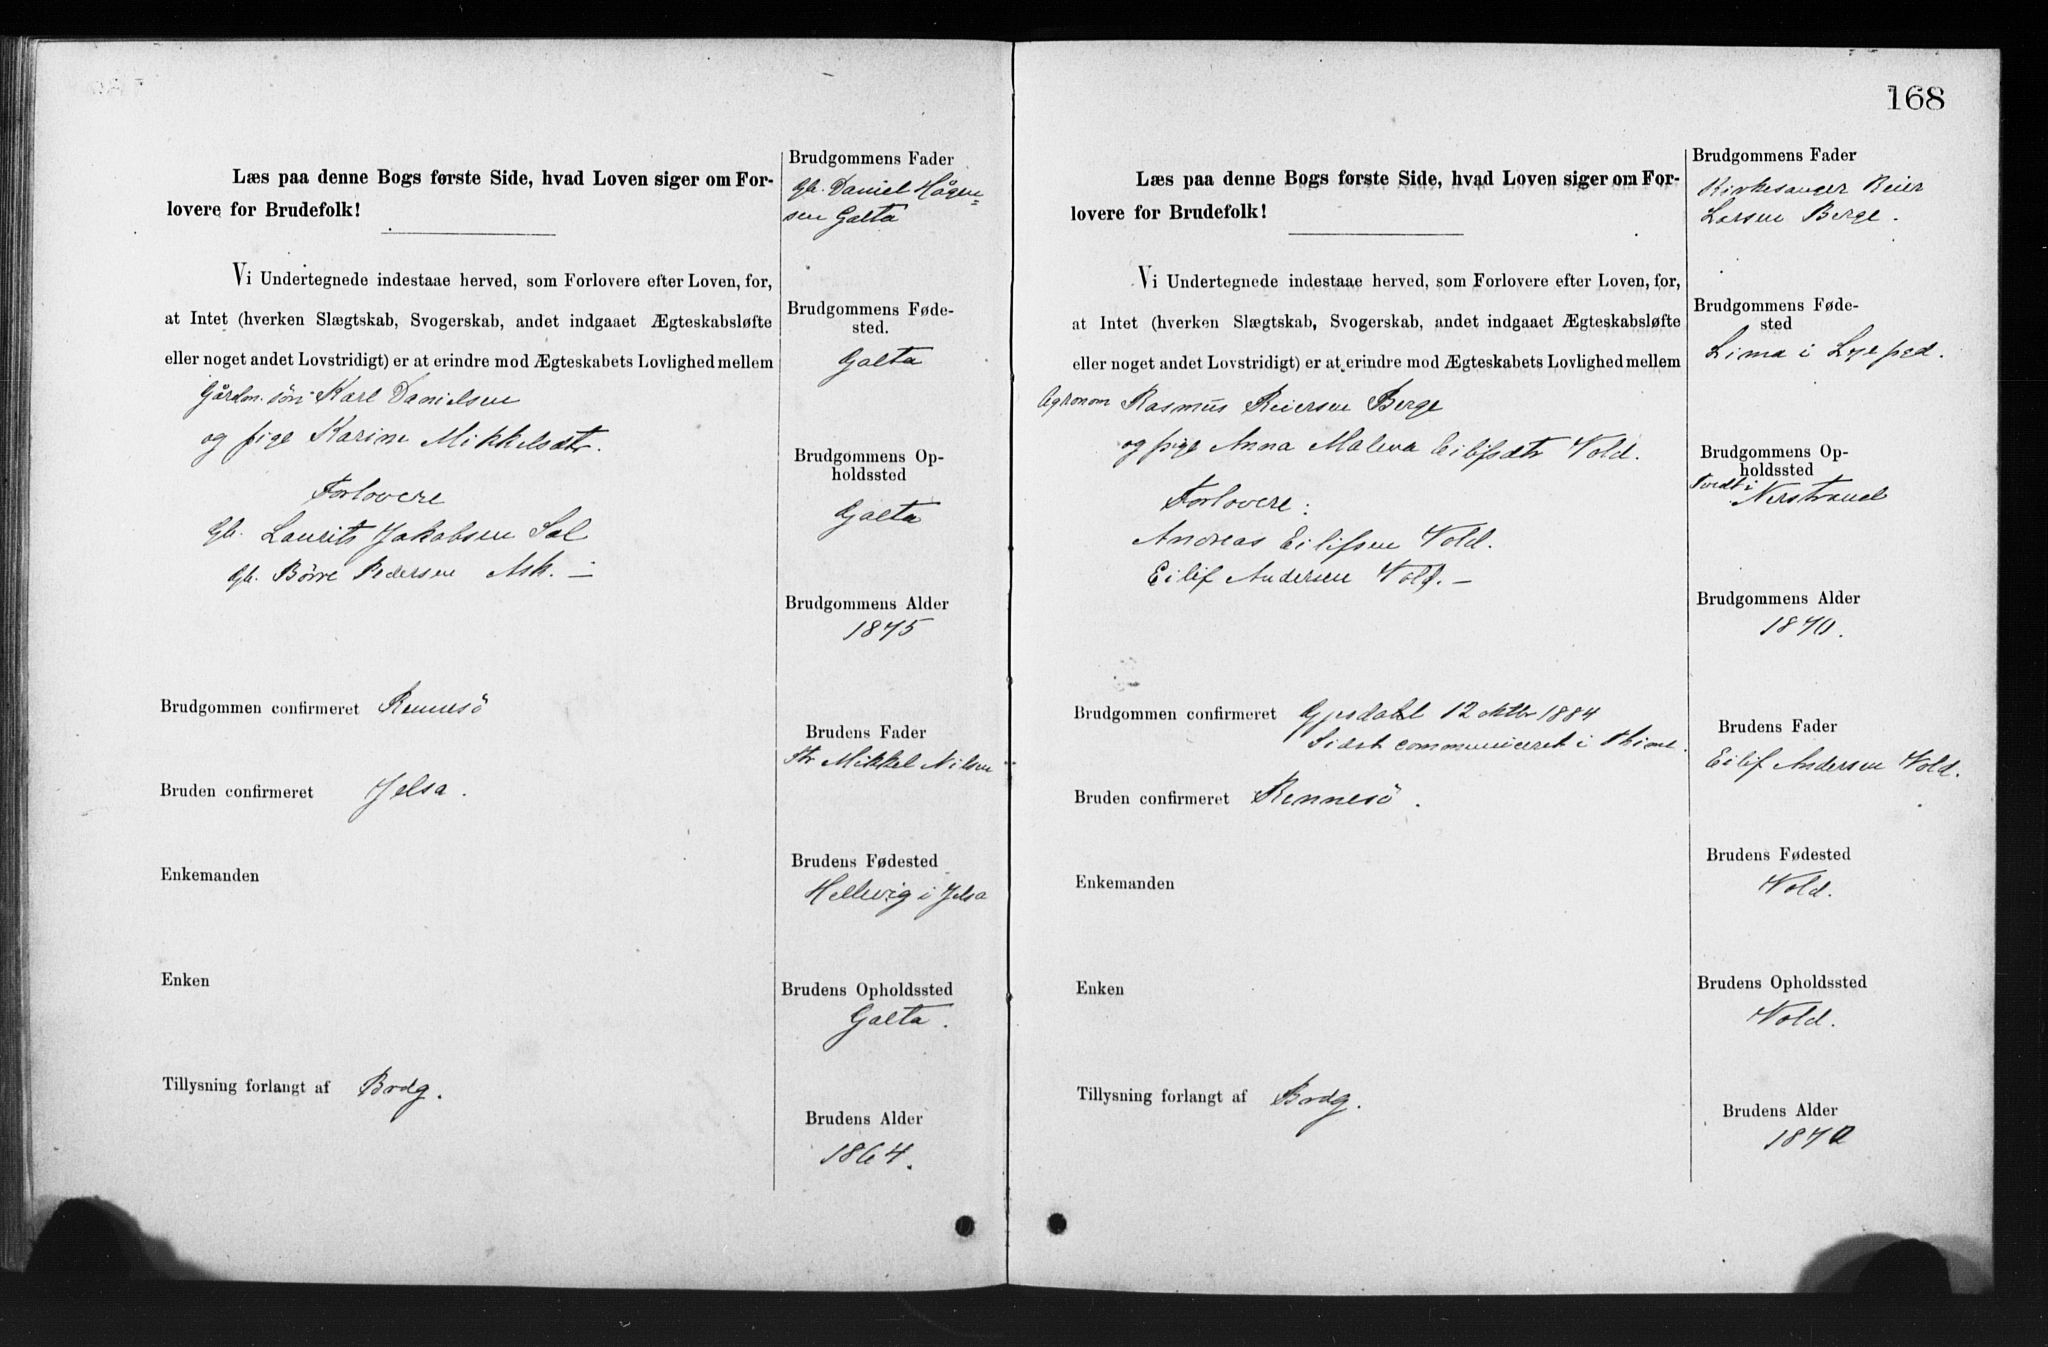 Læs paa denne Bogs første Side, hvad Loven siger om For-
lovere for Brudefolk!
Vi Undertegnede indestaae herved, som Forlovere efter Loven, for,
at Intet (hverken Slægtskab, Svogerskab, andet indgaaet Ægteskabsløfte
eller noget andet Lovstridigt) er at erindre mod Ægteskabets Lovlighed mellem
Gårdm. søn Karl Danielsen
og pige Karine Mikkelsdtr.
Forlovere
Gb. Laurits Jakobsen Sel
Gb. Børre Pedersen Ask. —
Brudgommen confirmeret Rennesö
Bruden confirmeret Jelsa.
Enkemanden
Enken
Tillysning forlangt af Brdg.
Brudgommens Fader
Gb. Daniel Hågen=
sen Galta
Brudgommens Føde-
sted.
Galta
Brudgommens Op-
holdssted
Galta
Brudgommens Alder
1875
Brudens Fader
Str Mikkel Nilsen
Brudens Fødested
Hellvig i Jelsa
Brudens Opholdssted
Galta.
Brudens Alder
1864.
168
Læs paa denne Bogs første Side, hvad Loven siger om For-
lovere for Brudefolk!
Vi Undertegnede indestaae herved, som Forlovere efter Loven, for,
at Intet (hverken Slægtskab, Svogerskab, andet indgaaet Ægteskabsløfte
eller noget andet Lovstridigt) er at erindre mod Ægteskabets Lovlighed mellem
Agronom Rasmus Reiersen Berge
og pige Anna Maleva Eilifsdtr Vold.
Forlovere:
Andreas Eilifsen Vold.
Eilif Andersen Vold. —
Brudgommen confirmeret Gjesdahl 12 oktbr 1884
Sidst communiceret i Thime.
Bruden confirmeret Rennesö.
Enkemanden
Enken
Tillysning forlangt af Brdg.
Brudgommens Fader
Kirkesanger Reier
Larsen Berge.
Brudgommens Føde-
sted
Lima i Lye pgd.
Brudgommens Op-
holdssted
Tvedt i Nerstrand
Brudgommens Alder
1870.
Brudens Fader
Eilif Andersen Vold.
Brudens Fødested
Vold.
Brudens Opholdssted
Vold.
Brudens Alder
1872